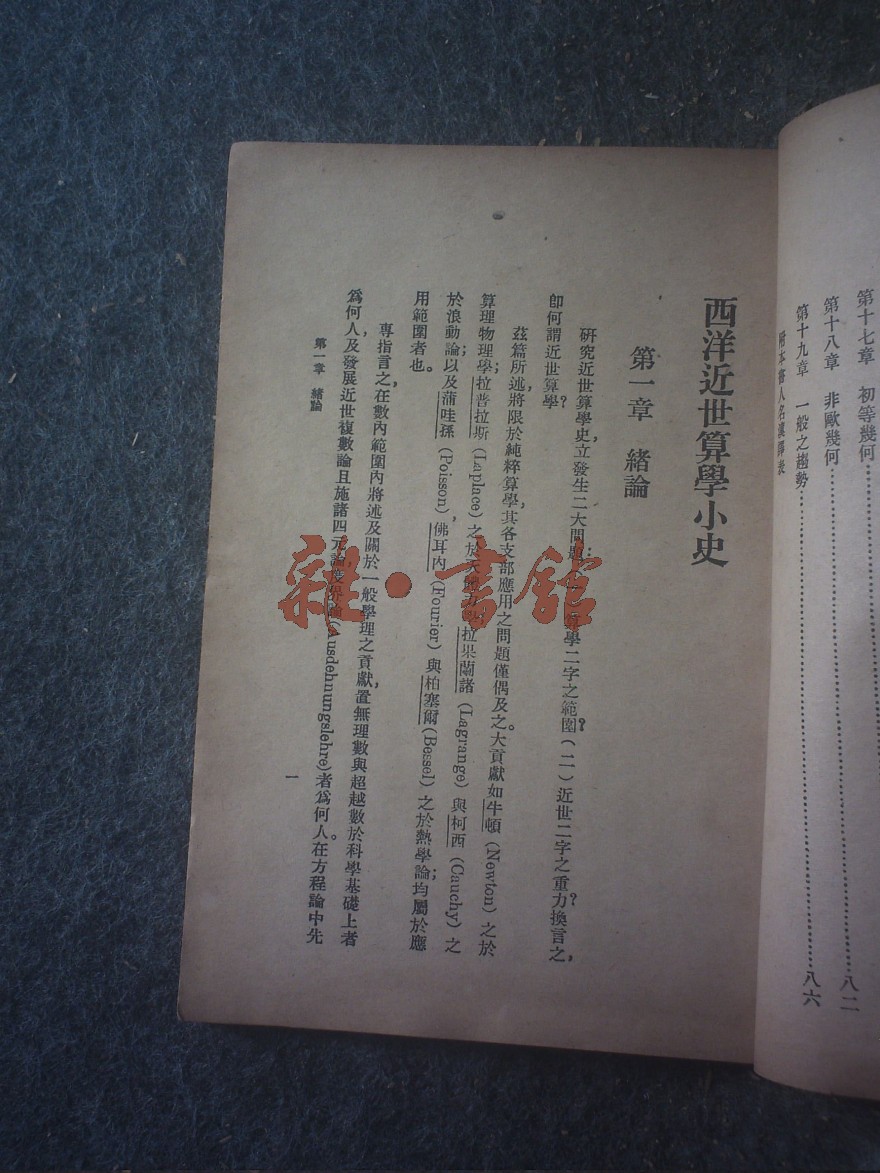 第十七章 初等幾何
第十八章 非歐幾何 八二
第十九章 一般之趨勢 八六
西洋近世算學小史
第一章 緒論
研究近世算學史,立發生二大問題:算學二字之範圍?(二)近世二字之重力?換言之,
卽何謂近世算學?
茲篇所述,將限於純粹算學,其各支部應用之問題僅偶及之。大貢獻如牛頓(Newton)之於
算理物理學;拉普拉斯(Laplace)之於天體力學;拉果蘭諸(Lagrange)與柯西(Cauchy)之
於浪動論;以及蒲哇孫(Poisson),佛耳內(Fourier)與柏塞爾(Bessel)之於熱學論;均屬於應
用範圍者也。
專指言之,在數內範圍內將述及關於一般學理之貢獻,置無理數與超越數於科學基礎上者
爲何人,及發展近世複數論且施諸四元論度界論(Ausdehnungslehre)者爲何人。在方程論中先
第一章 緒論
一
雜·書館